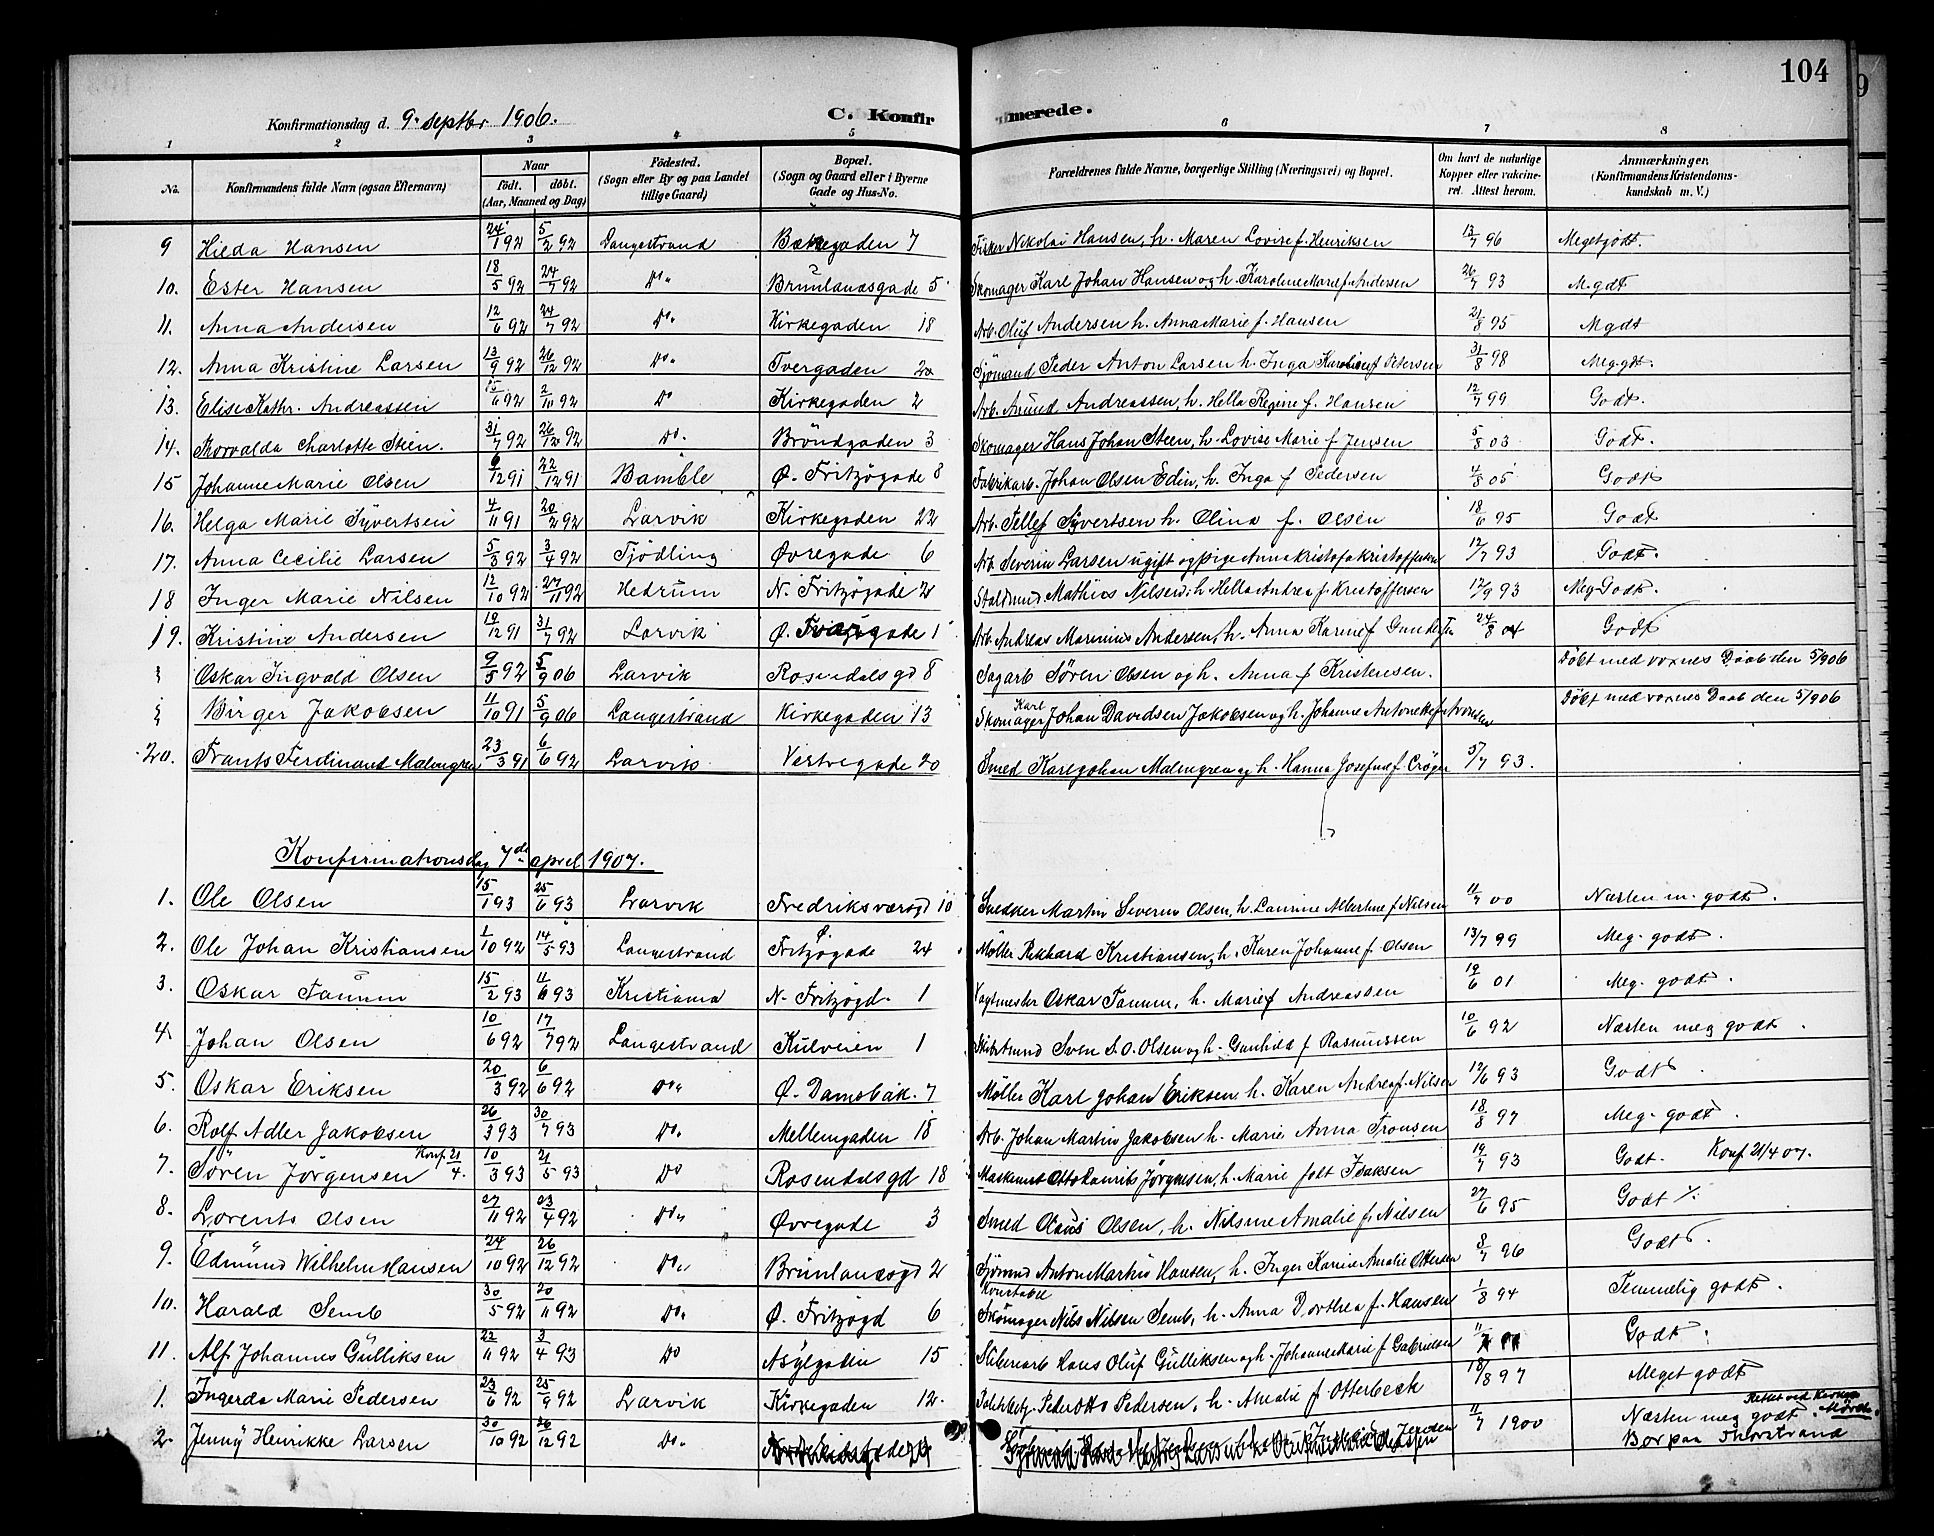 104
Konfirmationsdag d. 9. septbr 1906. C. Konfirmerede.
1 2 3 4 5 6 7 8
No. Konfirmandens fulde Navn (ogsaa Efternavn) Naar født. døbt. (Aar, Maaned og Dag) Fødested. (Sogn eller By og paa Landet tillige Gaard) Bopæl. (Sogn og Gaard eller i Byerne Gade og Hus-No. Forældrenes fulde Navne, borgerlige Stilling (Næringsvei) og Bopæl. Om havt de naturlige Kopper eller vakcineret. Attest herom. Anmærkninger. (Konfirmandens Kristendomskundskab m. V.)
9 Hilda Hansen 24/1 92 5/2 92 Langestrand Bækkegaden 7 Fisker Nikolai Hansen, h. Maren Lovise f. Henriksen 13/7 96 Meget godt.
10. Ester Hansen 18/5 92 24/7 92 Do. Brunlanæsgade 5 Skomager Karl Johan Hansen og h. Karoline Marie f. Andersen 26/7 93 M. gdt
11. Anna Andersen 12/6 92 24/7 92 Do. Kirkegaden 18 Arb. Oluf Andersen h. Anna Marie f. Hansen 21/8 95 Mgdt
12. Anna Kristine Larsen 13/9 92 26/12 92 Do. Tvergaden Sjømand Peder Anton Larsen h. Inga Karoline f. Petersen 31/8 98 Meg. gdt.
13. Elise Kathr. Andreassen 15/6 92 2/10 92 Do Kirkegaden 2 Arb. Amund Andreassen, h. Hella Regine f. Hansen 12/7 99 Godt.
14. Thorvalda Charlotte Steen. 31/7 92 26/12 92 Do. Brøndgaden 3 Skomager Hans Johan Steen, h. Lovise Marie f. Jensen 5/8 03 Godt.
15 Johanne Marie Olsen 6/12 91 22/12 91 Bamble Ø. Fritzøgade 8 Fabrikarb. Johan Olsen Edin, h. Inga f. Pedersen 4/8 05 Godt
16. Helga Marie Syvertsen 4/11 91 20/2 92 Larvik Kirkegaden 22 Arb. Tellef Syvertsen h. Olina f. Olsen 18/6 95 Godt
17. Anna Cecilie Larsen 5/3 92 3/4 92 Tjødling Øvregade 6 Arb. Severin Larsen ugift og pige Anna Kristofa Kristoffersen 12/7 93 Godt.
18 Inger Marie Nilsen 12/10 92 27/11 92 Hedrum N. Fritzøgade 2 Staldmand Mathias Nilsen, h. Hella Andrea f. Kristoffersen 12/9 93 Meg Godt.
19. Kristine Andersen 19/12 91 31/7 92 Larvik Ø. gade 1 Arb. Andreas Marinius Andersen, h. Anna Karine f. 24/8 04 Godt
Oskar Ingvald Olsen 9/5 92 5/9 06 Larvik Rosendalsgd 8 Sagarb Søren Olsen og h. Anna f. Kristensen. Døbt med voxnes Daab den 5/9 06
Birger Jakobsen 11/10 91 5/9 06 Langestrand Kirkegaden 13 Skomager Karl Johan Davidsen Jakobsen og h. Johanne Antonette f. Aronsen Døbt med voxnes Daab den 5/9 06
20. Frants Ferdinand Malmgren 23/3 91 6/6 92 Larvik Vestregade 20 Smed Karl Johan Malmgren og h. Hanna Josefine f. Crøger 5/7 93.
Konfirmationsdag 7de april 1907.
1. Ole Olsen 15/1 93 25/6 93 Larvik Fredriksværngd 10 Snedker Martin Severin Olsen, h. Laurine Albertine f. Nilsen 11/7 00 Næsten m. godt.
2. Ole Johan Kristiansen 1/10 92 14/5 93 Langestrand Ø. Fritzøgade 24 Møller Rikhard Kristiansen, h. Karen Johanne f. Olsen 13/7 99 Meg. godt.
3. Oskar Tamm 15/2 93 11/6 93 Kristiania N. Fritzøgd. 1 Vagtmester Oskar Tamm, h. Marie f. Andreassen 19/6 01 Meg. godt.
4. Johan Olsen 10/6 92 17/7 92 Langestrand Kulveien 1 Skibstmmd Sven S. O. Olsen og h. Gunhild f. Rasmussen 10/6 92 Næsten meg godt.
5. Oskar Eriksen 20/3 92 6/6 92 Do. Ø. Damsbak. 7 Møller Karl Johan Eriksen, h. Karen Andrea f. Nilsen 12/6 93 Godt.
6. Rolf Adler Jakobsen 26/3 93 30/7 93 Do. Mellemgaden 18 Arb. Johan Martin Jakobsen h. Marie Anna Tronsen 18/8 97 Meg. godt.
7. Søren Jörgensen Konf. 21/4. 10/3 93 21/5 93 Do Rosendalsgd 18 Maskmst Otto Laurits Jörgensen, h. Marie født Isaksen 19/7 93 Godt. Konf 21/4 07.
8. Lorents Olsen 27/11 92 03/4 92 Do. Øvregade 3 Smed Olaus Olsen, h. Nilsine Amalie f. Nilsen 27/6 95 Godt
9. Edmund Wilhelm Hansen 24/10 92 26/12 92 Do. Brunlanæsgd 2 Sjømnd Anton Markus Hansen, h. Inger Karine Amalie Ottersen 8/7 96 Godt.
10. Harald Semb 30/5 92 20/11 92 Do. Ø. Fritzøgd 6 Konstabel Skomager Nils Nilsen Semb, h. Anna Dorthea f. Hansen 1/8 94 Temmelig godt.
11. Alf Johannes Gulliksen 22/11 92 3/4 93 Do Asylgaden 15 Sliberiarb Hans Oluf Gulliksen og h. Johanne Marie f. Gabrielsen Godt.
1. Ingerda Marie Pedersen 23/6 92 25/9 92 Larvik Kirkegaden 12. Peder Otto Pedersen, h. Amalie f. Otterbeck 18/8 97 Meget godt
2. Jenny Henrikke Larsen 30/10 92 26/12 92 Do. 11/7 1900 Næsten meg godt. Rettet ved
Bor paa Thorstrand